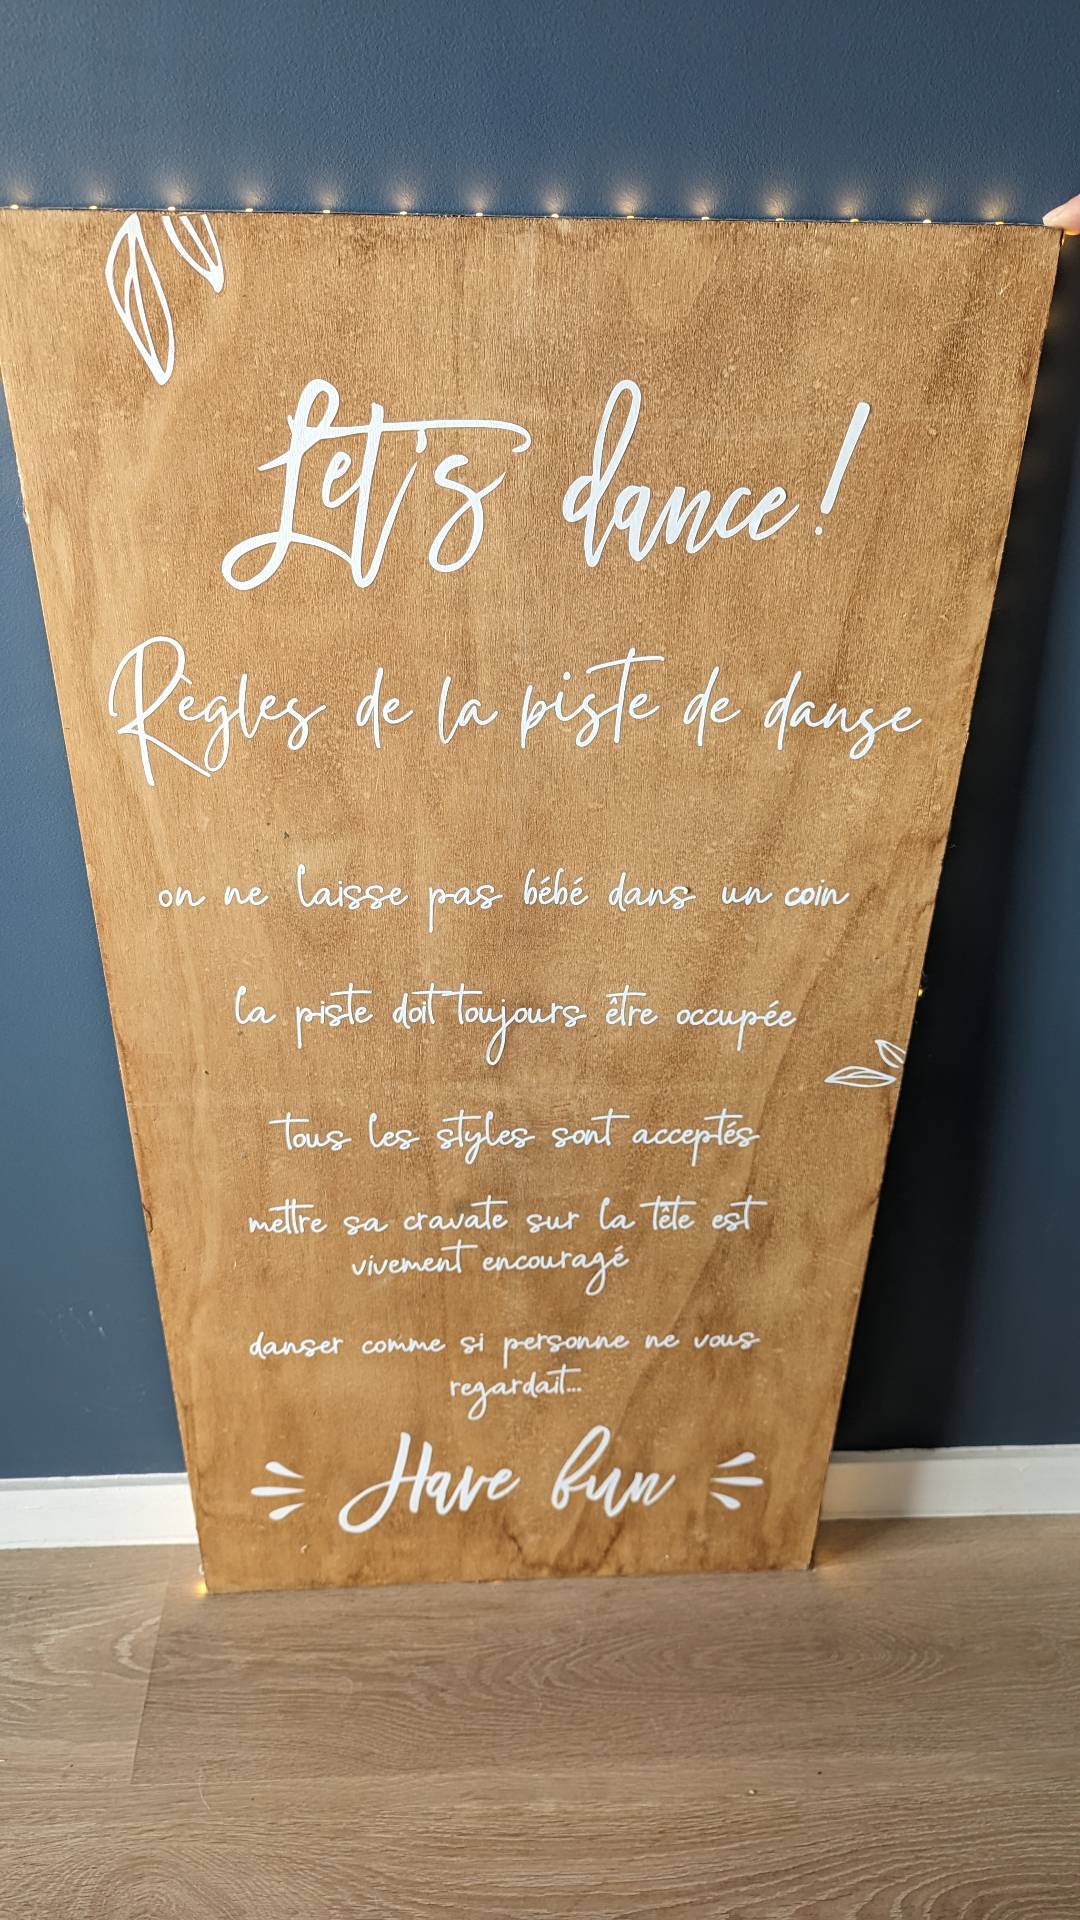 Let's dance!
Règles de la piste de danse
on ne laisse pas bébé dans un coin
la piste doit toujours être occupée
tous les styles sont acceptés
mettre sa cravate sur la tête est
vivement encouragé
danser comme si personne ne vous
regardait...
Have fun